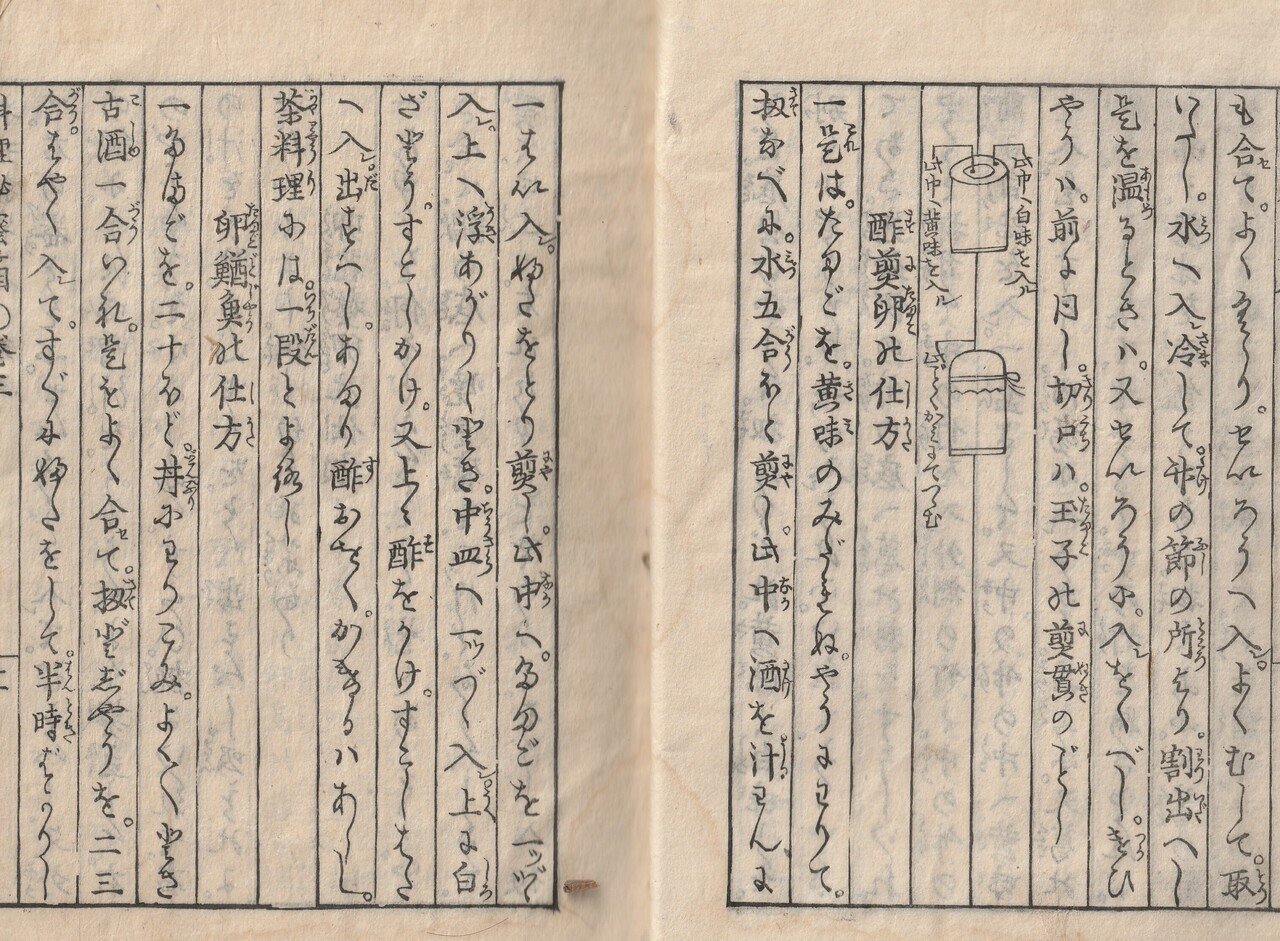 も合て。よくすり。せいろうへ入。よくむして。取
いだし。水へ入冷して竹の節の所より。割出へし
是を温るときハ。又せいろうに。入をくべし。つかひ
やうハ。前に同し。切口ハ。玉子の煎貫のごとし
此中へ白味を入ル
此中へ黄味を入ル
此ごとくかミにてつゝむ
酢煎卵の仕方
一是は。たまごを。黄味のみだれぬやうにわりて。
扨なべに。水五合ほど煎し。此中へ酒を汁わんに
一はい入。ふたをとり煎し。此中へ。たまごを一ッづゝ
入。上へ浮あがりしとき。中皿へ一ッづゝ入。上に白
ざとう。すこしかけ。又上へ酢をかけ。すこしはた
へ入出すへし。あまり酢おほく。かきるハあしし。
茶料理には一段とよろし
卵鰌魚の仕方
一たまごを。二十ほど丼にわりこみ。よく〳〵とき
古酒一合いれ。是をよく合て。扨どぢやうを。二三
合はやく入て。すぐにふたをして半時ばかりし